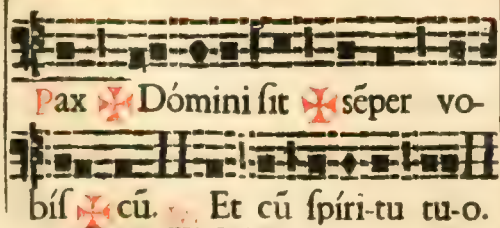 Pax ✠ Dómini ſit ✠ sẽper vo-
biſ ✠ cũ. Et cũ ſpíri-tu tu-o.